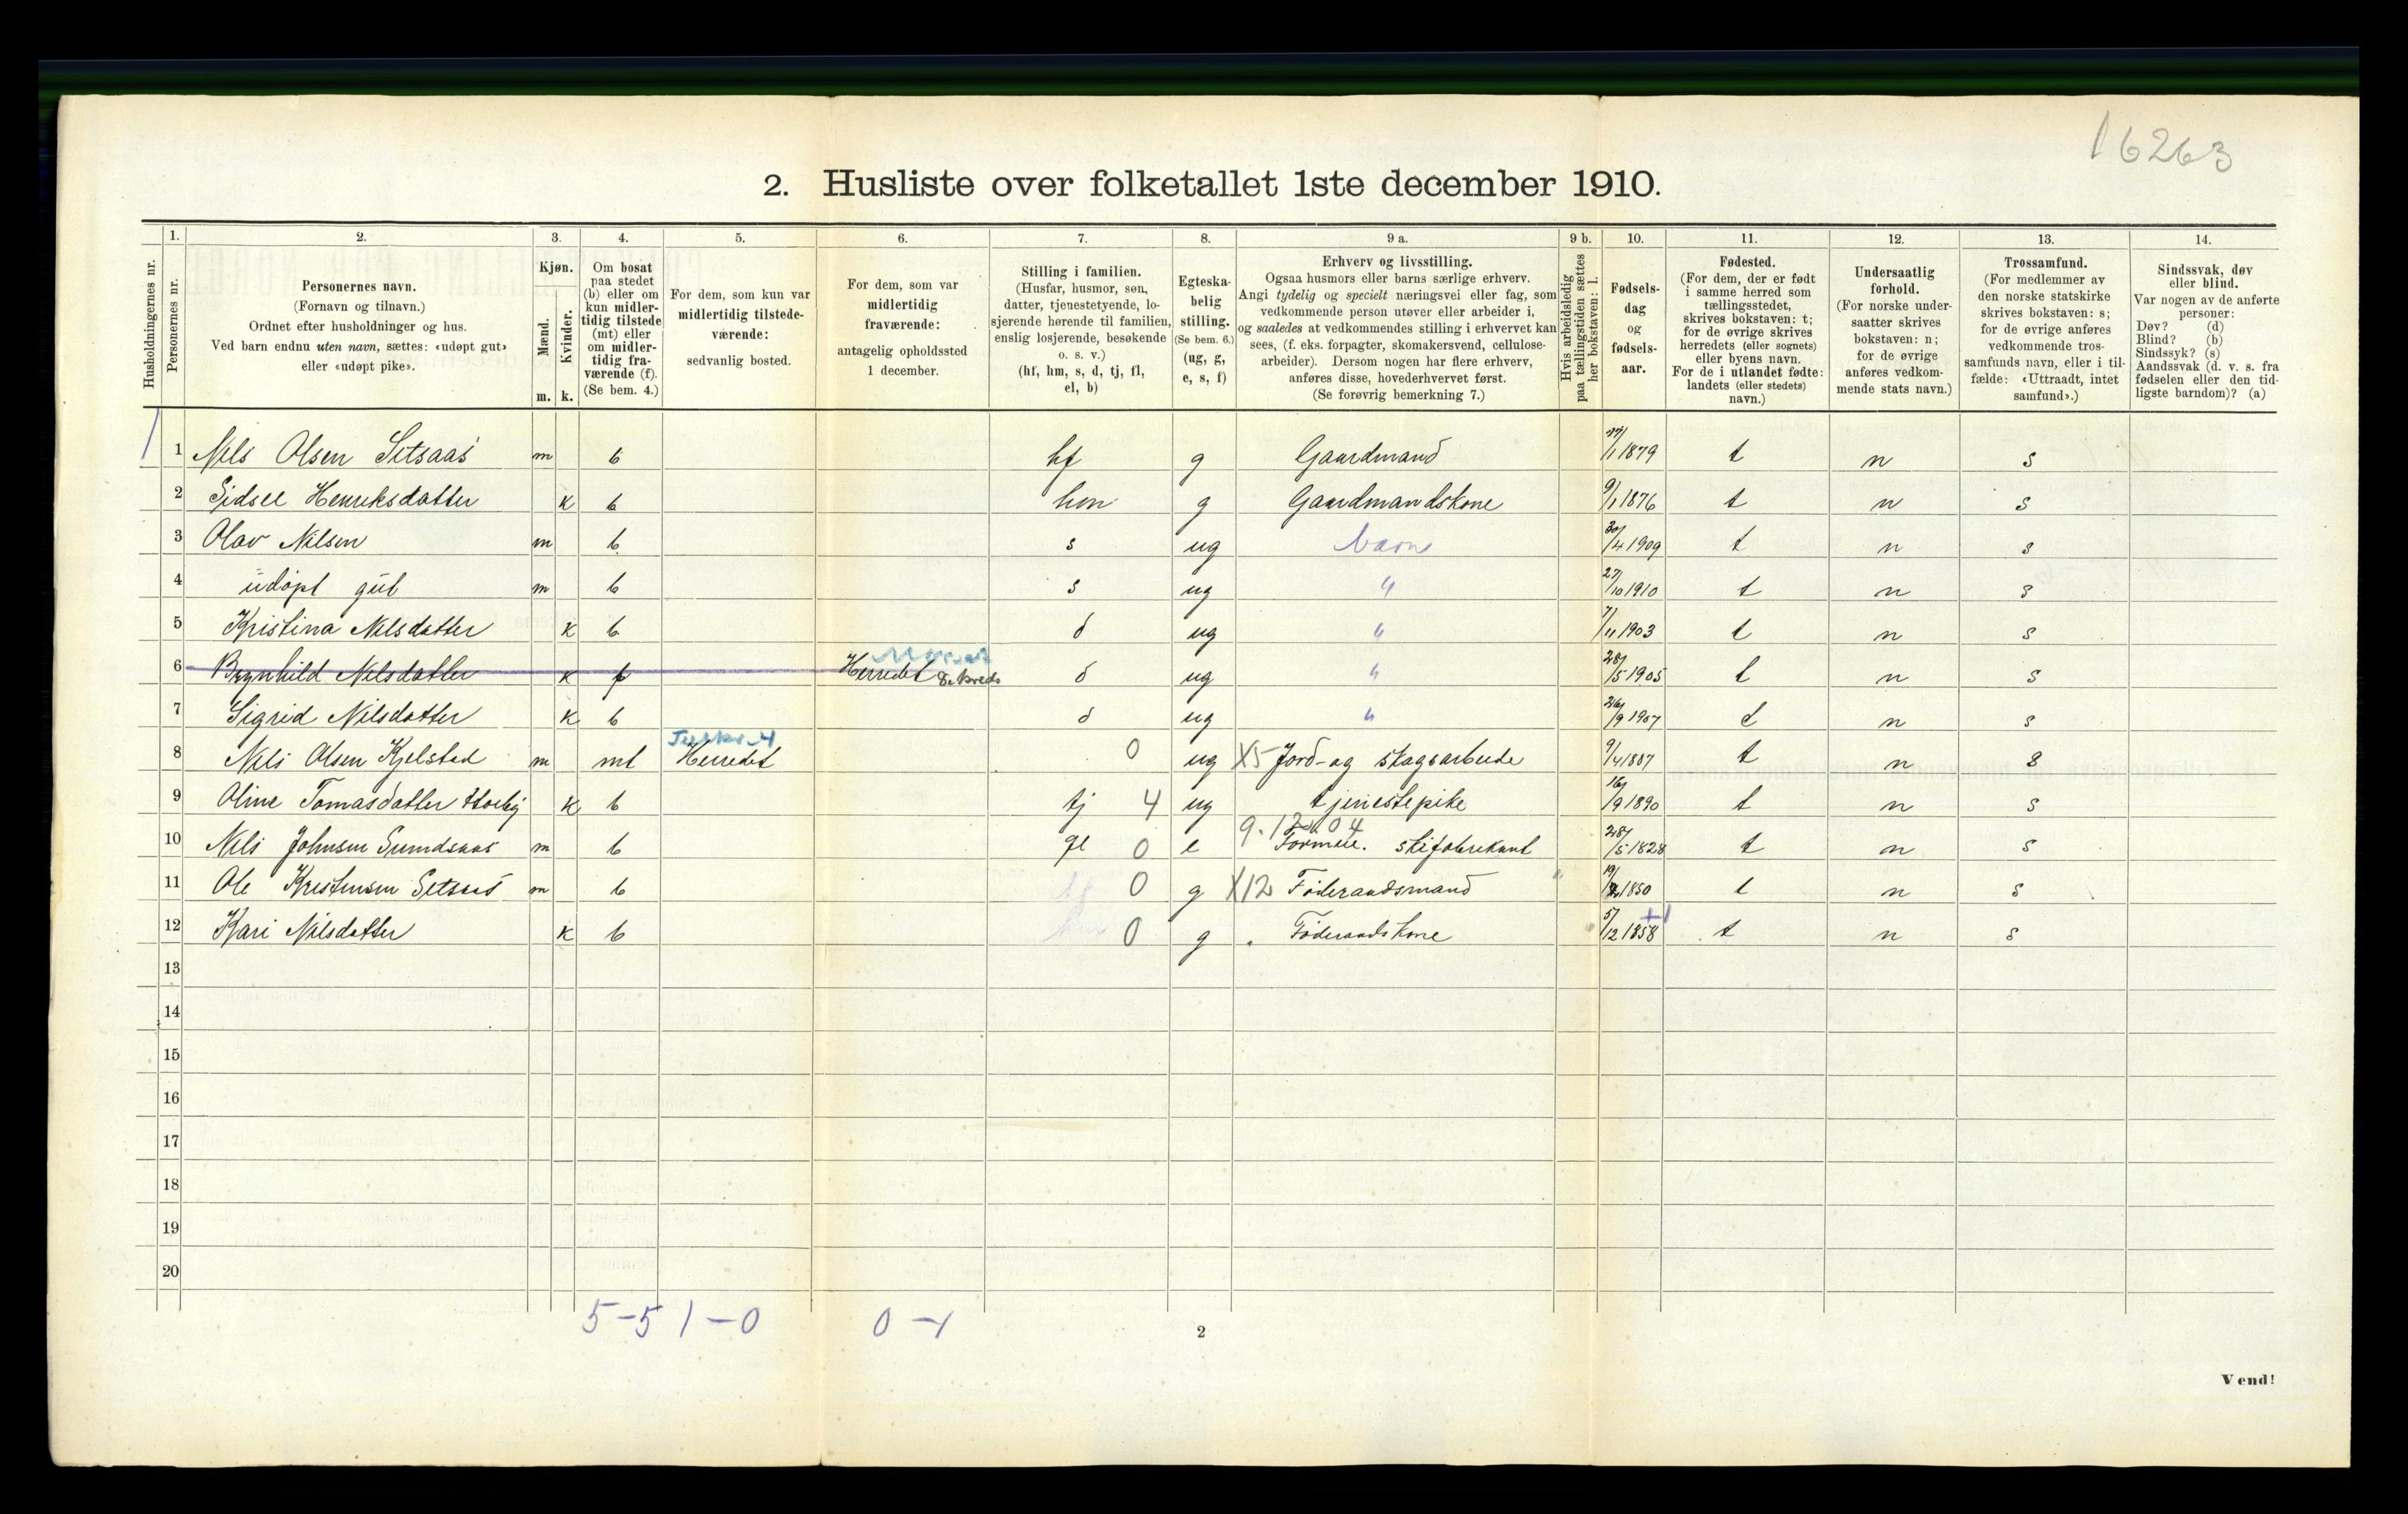 16263
2. Husliste over folketallet 1ste december 1910.
Husholdningernes nr.
1. Personernes nr.
2. Personernes navn. (Fornavn og tilnavn.) Ordnet efter husholdninger og hus. Ved barn endnu uten navn, sættes: «udøpt gut» eller «udøpt pike».
3. Kjøn. Mænd. m. Kvinder. k.
4. Om bosat paa stedet (b) eller om kun midlertidig tilstede (mt) eller om midlertidig fraværende (f). (Se bem. 4.)
5. For dem, som kun var midlertidig tilstedeværende: sedvanlig bosted.
6. For dem, som var midlertidig fraværende: antagelig opholdssted 1 december.
7. Stilling i familien. (Husfar, husmor, søn, datter, tjenestetyende, losjerende hørende til familien, enslig losjerende, besøkende o. s. v.) (hf, hm, s, d, tj, fl, el, b)
8. Egteskabelig stilling. (Se bem. 6.) (ug, g, e, s, f)
9 a. Erhverv og livsstilling. Ogsaa husmors eller barns særlige erhverv. Angi tydelig og specielt næringsvei eller fag, som vedkommende person utøver eller arbeider i, og saaledes at vedkommendes stilling i erhvervet kan sees, (f. eks. forpagter, skomakersvend, cellulosearbeider). Dersom nogen har flere erhverv, anføres disse, hovederhvervet først. (Se forøvrig bemerkning 7.)
9 b. Hvis arbeidsledig paa tællingstiden sættes her bokstaven: l.
10. Fødselsdag og fødselsaar.
11. Fødested. (For dem, der er født i samme herred som tællingsstedet, skrives bokstaven: t; for de øvrige skrives herredets (eller sognets) eller byens navn. For de i utlandet fødte: landets (eller stedets) navn.)
12. Undersaatlig forhold. (For norske undersaatter skrives bokstaven: n; for de øvrige anføres vedkommende stats navn.)
13. Trossamfund. (For medlemmer av den norske statskirke skrives bokstaven: s; for de øvrige anføres vedkommende trossamfunds navn, eller i tilfælde: «Uttraadt, intet samfund».)
14. Sindssvak, døv eller blind. Var nogen av de anførte personer: Døv? (d) Blind? (b) Sindssyk? (s) Aandssvak (d. v. s. fra fødselen eller den tidligste barndom)? (a)
1 1 Nils Olsen Setsaas m b hf g Gaardmand 17/1 1879 t n s
2 Sidsel Henriksdatter k b hm g Gaardmandskone 9/1 1876 t n s
3 Olav Nilsen m b s ug barn 30/4 1909 t n s
4 udøpt gut m b s ug " 27/10 1910 t n s
5 Kristina Nilsdatter k b d ug " 7/11 1903 t n s
6 Brynhild Nilsdatter k f Herredet 8. kreds d ug " 28/5 1905 t n s
7 Sigrid Nilsdatter k b d ug " 26/9 1907 t n s
8 Nils Olsen Kjelstad m mt Herredet 0 ug X5 Jord- og skogsarbeide 9/4 1887 t n s
9 Oline Tomasdatter k b tj 4 ug tjenestepike 16/9 1890 t n s
10 Nils Johnsen Sundsaas m b 0 e skifabrikant 28/5 1828 t n s
11 Ole Kristensen Setsaas m b 0 g X12 Føderaadsmand 1850 t n s
12 Kari Nilsdatter k b 0 g " Føderaadskone 5/12 1858 t n s
13
14
15
16
17
18
19
20
5-5 1-0 0-1
2
Vend!